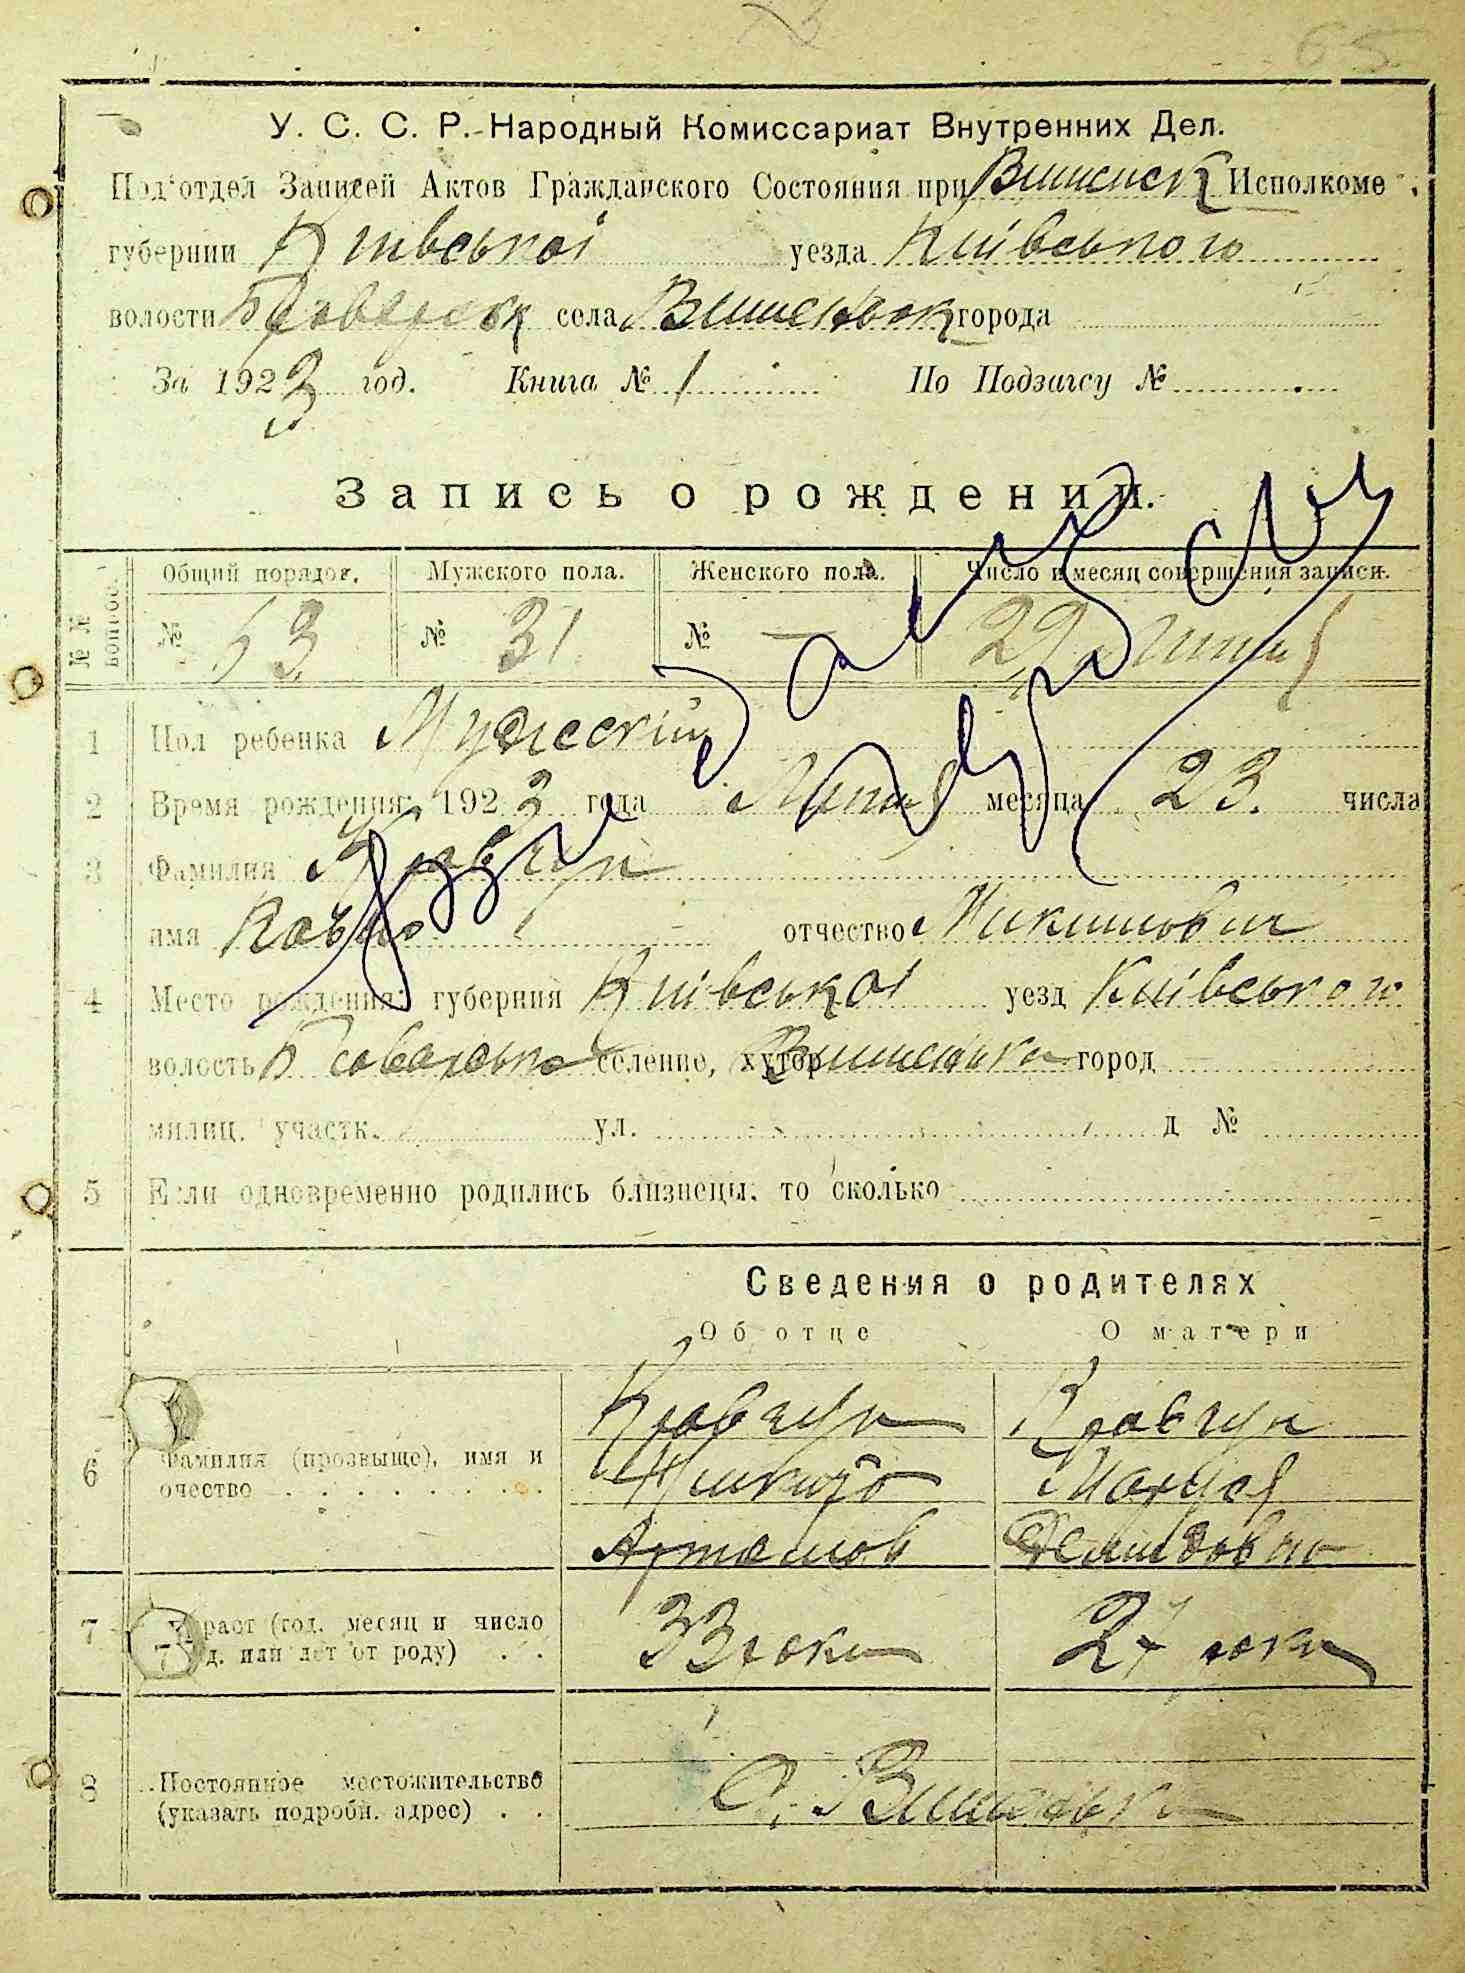 65
У. С. С. Р.-Народный Комиссариат Внутренних Дел.
Подотдел Записей Актов Гражданского Состояния при Вишенск Исполкоме
губернии Київської уезда Київського
волости Броварск села Вишеньок города
За 1923 год. Книга № 1 По Подзагсу №
Запись о рождении.
№№ вопрос. Общий порядок. Мужского пола. Женского пола. Число и месяц совершения записи.
№ 53 № 31 № — 29
1 Пол ребенка Мужеский
2 Время рождения: 1923 года месяца 23. числа
3 Фамилия Кравчук
имя Павло отчество Микитович
4 Место рождения: губерния Київської уезд Київського
волость Броварсько селение, хутор Вишеньки город
милиц. участк. ул. д №
5 Если одновременно родились близнецы, то сколько
Сведения о родителях
Об отце О матери
Кравчук Кравчук
6 Фамилия (прозвыще), имя и очество Микита Маруся
Артемов Демидовна
7 Возраст (год, месяц и число рожд. или лет от роду) 33 роки 27 роки
8 Постоянное местожительство (указать подробн. адрес) С. Вишеньки